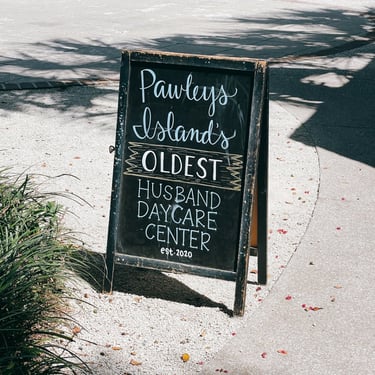 Pawleys
Island's
OLDEST
HUSBAND
DAYCARE
CENTER
est. 2020